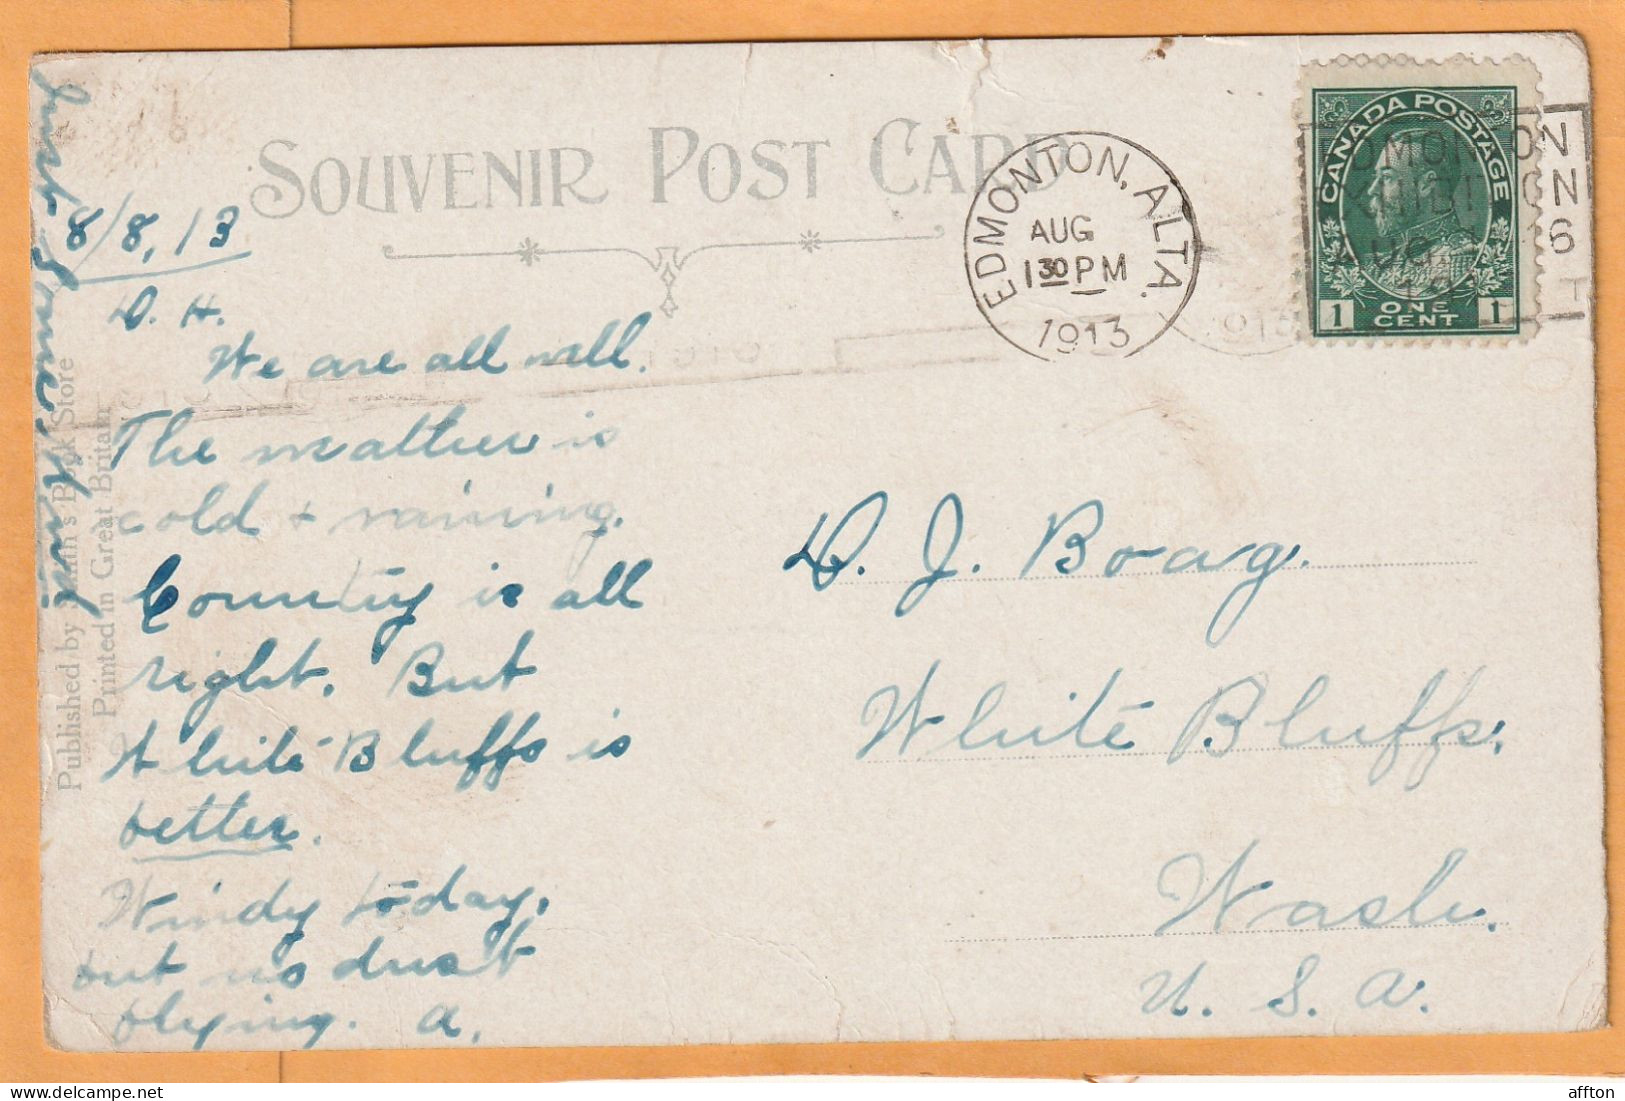 SOUVENIR POST CARD
8/8, 13
D. H.
We are all well.
The weather is
cold + raining.
Country is all
right. But
White Bluffs is
better.
Windy today,
but no dust
flying. A.
Published by Book Store
Printed in Great Britain
EDMONTON, ALTA.
AUG
1 30 PM
1913
CANADA POSTAGE
1 ONE CENT 1
D. J. Boag.
White Bluffs,
Wash.
U. S. A.
affton